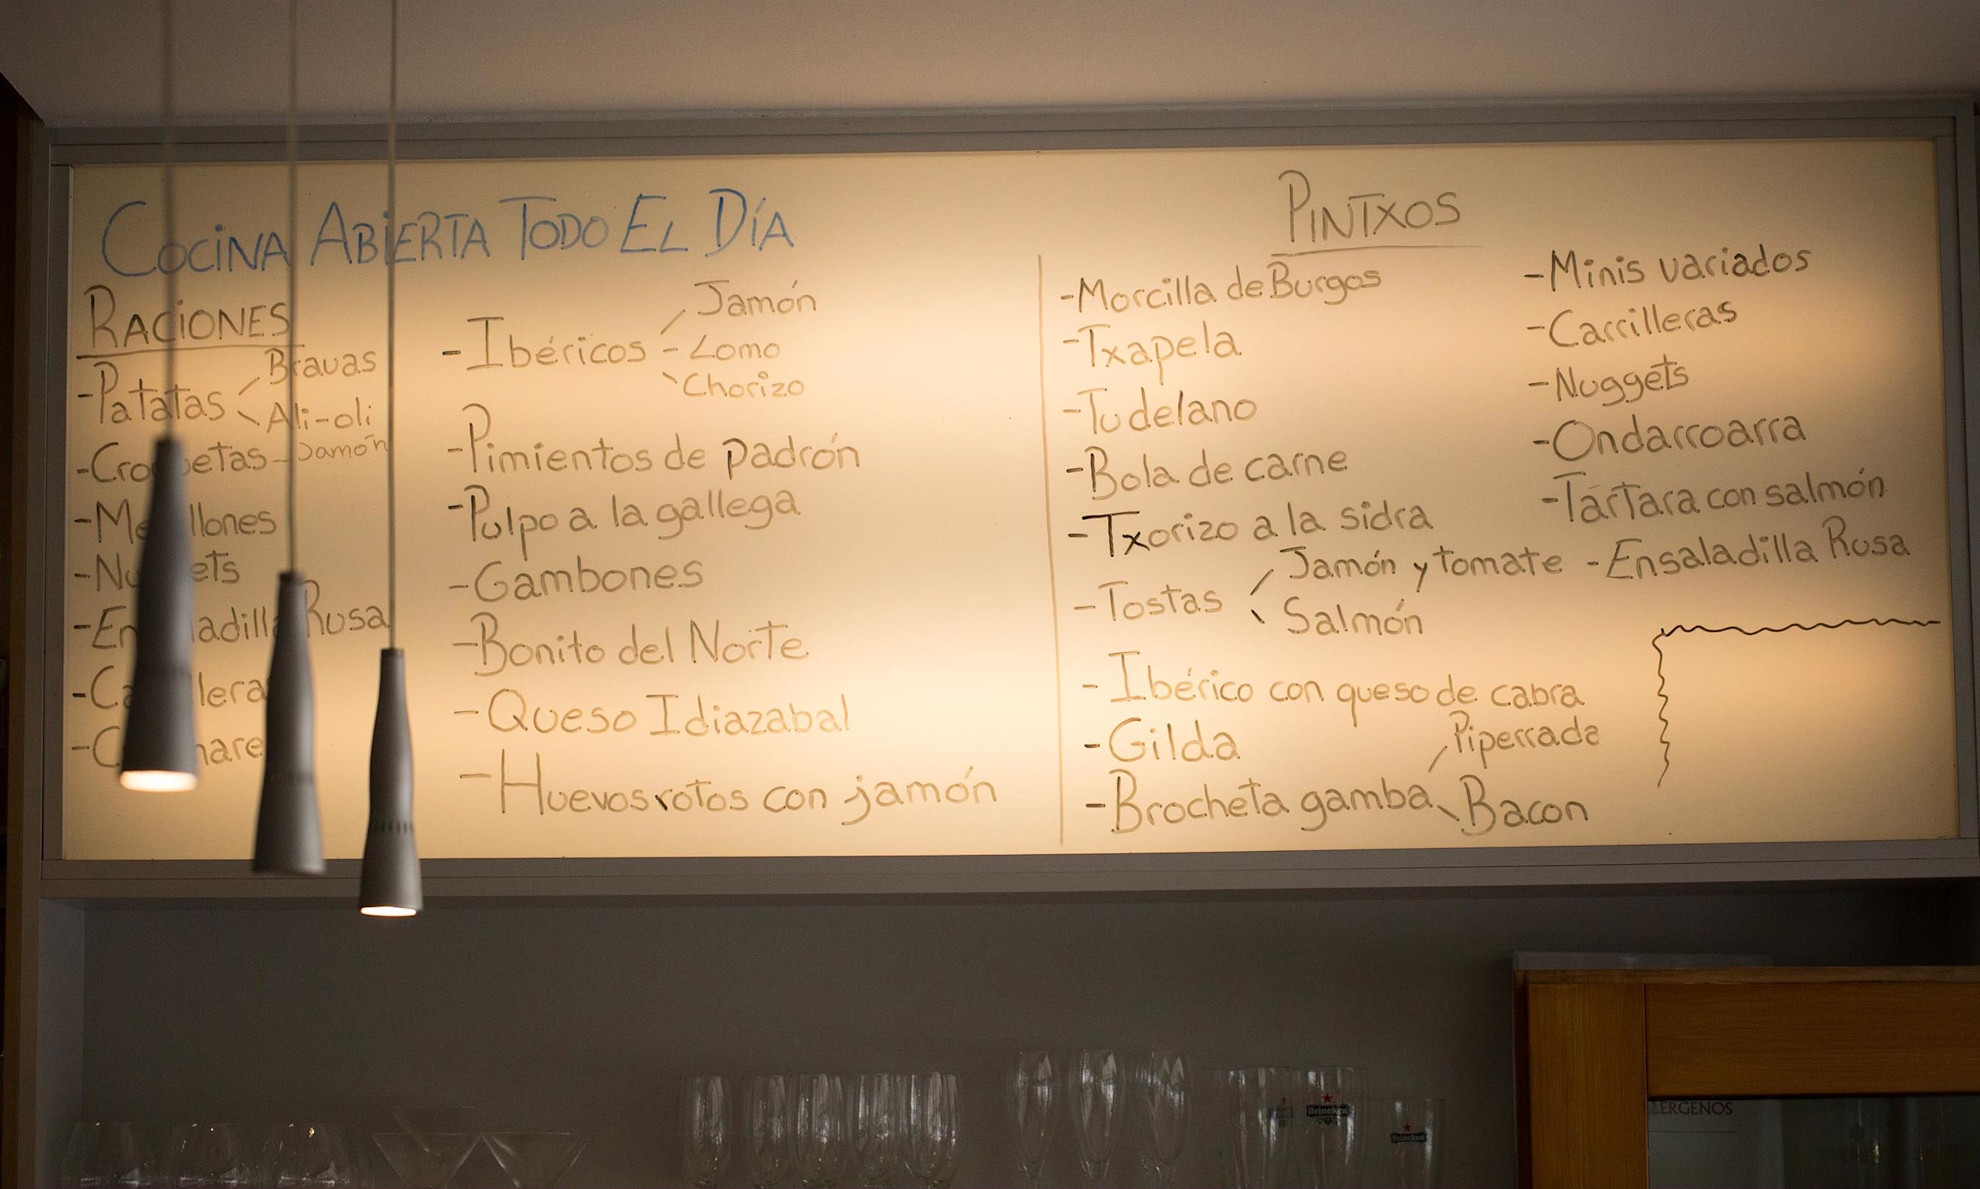 COCINA ABIERTA TODO EL DÍA
RACIONES
-Patatas
Bravas
Ali-oli
-Croquetas-Jamón
-Mejillones
-Nuggets
-Ensaladilla Rusa
-Carrilleras
-Ibéricos
Jamón
-Lomo
Chorizo
-Pimientos de padrón
-Pulpo a la gallega
-Gambones
-Bonito del Norte
-Queso Idiazabal
-Huevos rotos con jamón
PINTXOS
-Morcilla de Burgos
-Txapela
-Tudelano
-Bola de carne
-Txorizo a la sidra
-Tostas
Jamón y tomate
Salmón
-Ibérico con queso de cabra
-Gilda
-Brocheta gamba
Piperrada
Bacon
-Minis variados
-Carrilleras
-Nuggets
-Ondarroarra
-Tártara con salmón
-Ensaladilla Rusa
Heineken
Heineken
LÉRGENOS